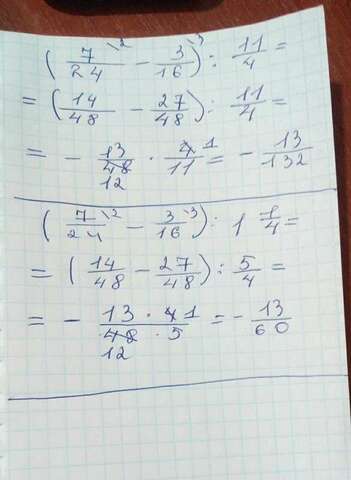 (7/24 \2 - 3/16 \3) : 11/4 =
= (14/48 - 27/48) : 11/4 =
= - 13/48 12 · 4/11 1 = - 13/132
(7/24 \2 - 3/16 \3) : 1 1/4 =
= (14/48 - 27/48) : 5/4 =
= - 13 · 4 1/48 · 5 12 = - 13/60